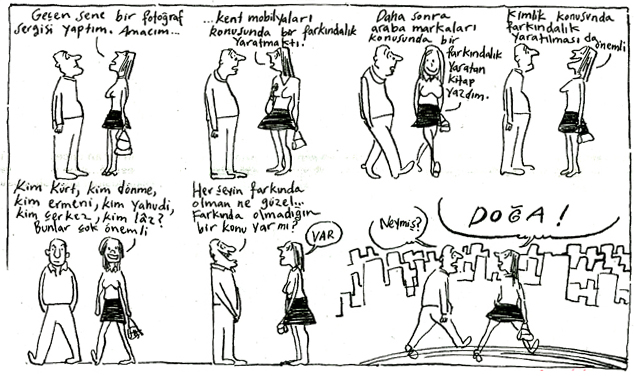 Geçen sene bir fotoğraf
sergisi yaptım. Amacım...
...kent mobilyaları
konusunda bir farkındalık
yaratmaktı.
Daha sonra
araba markaları
konusunda bir
farkındalık
yaratan
kitap
yazdım.
Kimlik konusunda
farkındalık
yaratılması da
önemli
Kim Kürt, kim dönme,
kim ermeni, kim yahudi,
kim çerkez, kim lâz?
Bunlar çok önemli
Her şeyin farkında
olman ne güzel...
Farkında olmadığın
bir konu var mı?
VAR
Neymiş?
DOĞA!